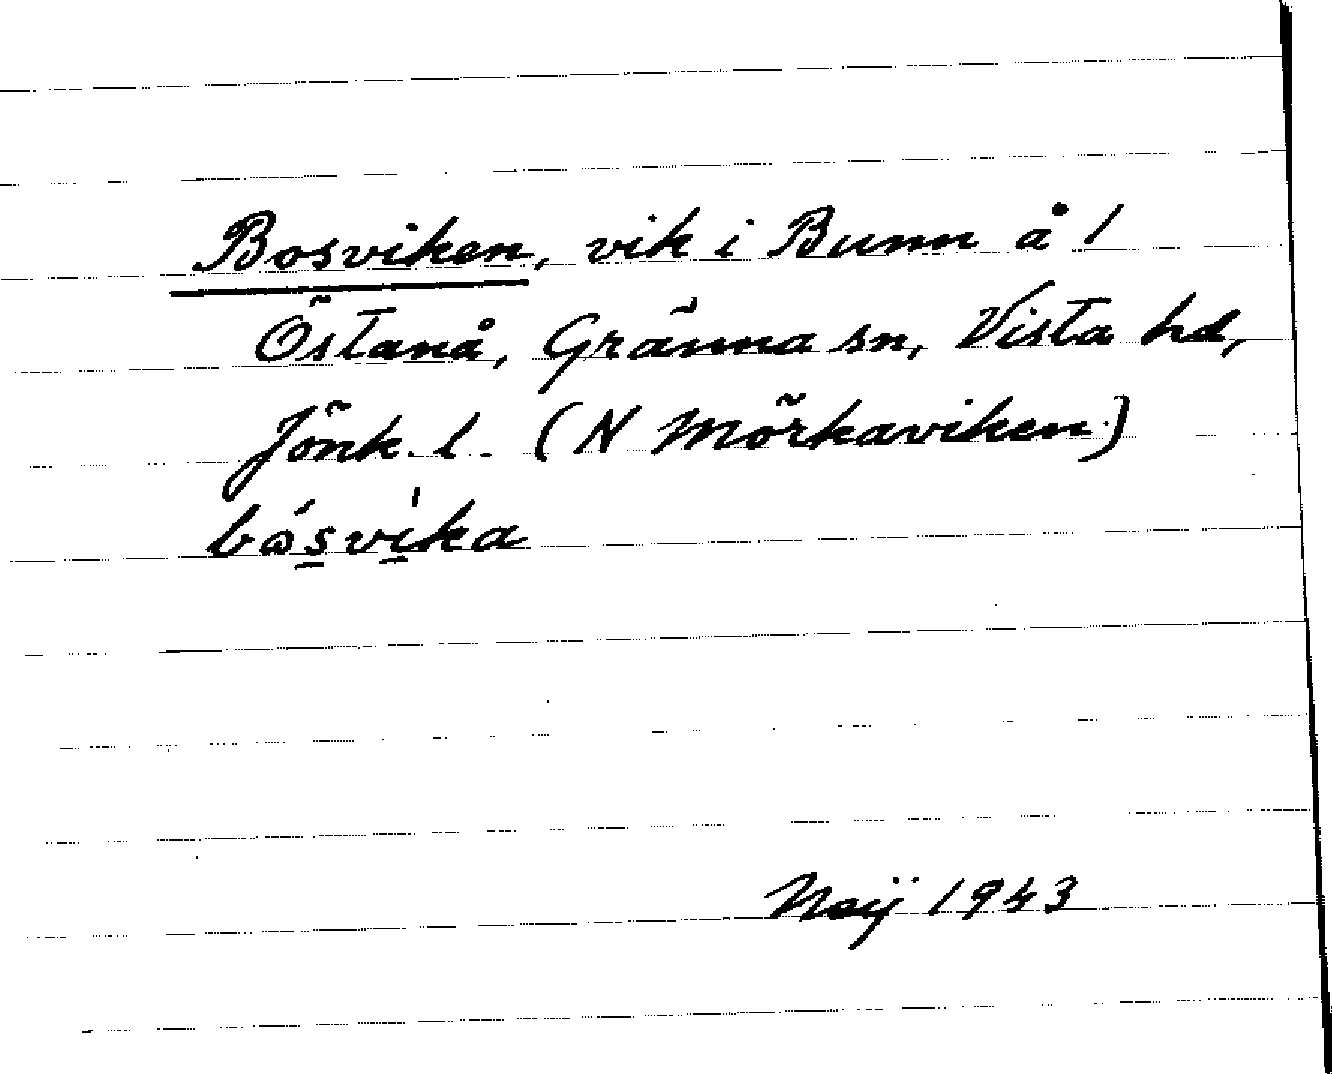 Bosviken, vik i Bunn å 1
Östanå, Gränna sn, Vista hd,
Jönk. l. (N Mörkaviken)
bósvìka
1943